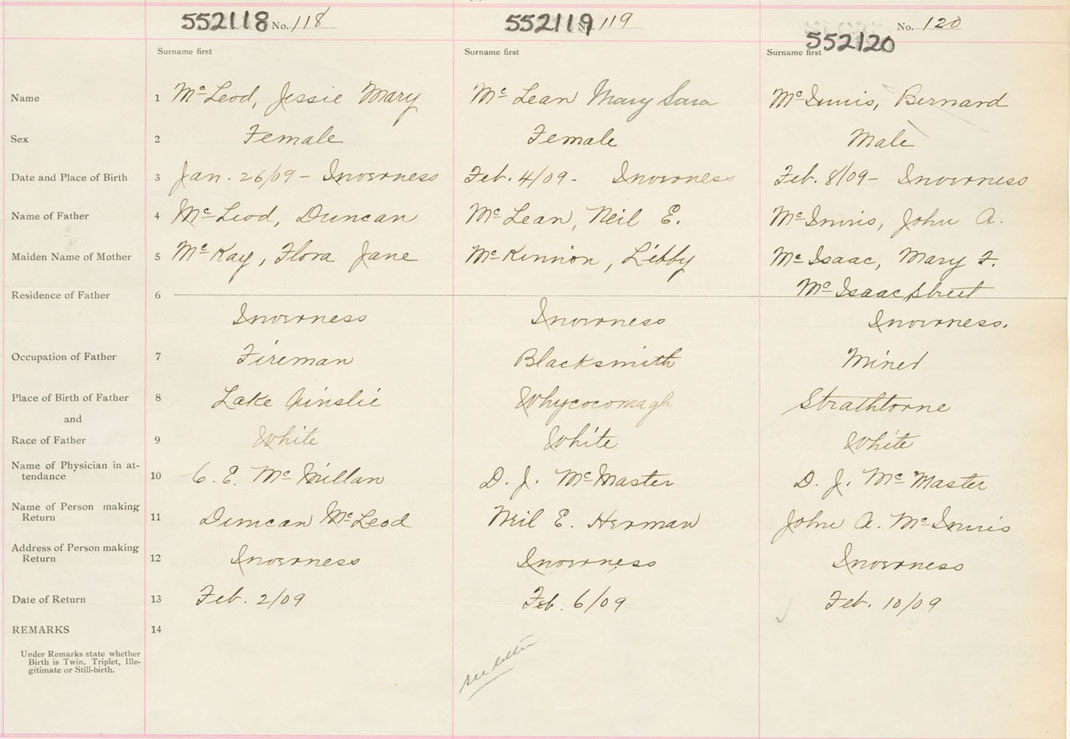 552118 No. 118 552119 No. 119 No. 120
552120
Surname first Surname first Surname first
Name 1 McLeod, Jessie Mary McLean Mary Sara McInnis, Bernard
Sex 2 Female Female Male
Date and Place of Birth 3 Jan. 26/09 - Inverness Feb. 4/09 - Inverness Feb. 8/09 - Inverness
Name of Father 4 McLeod, Duncan McLean, Neil E. McInnis, John A.
Maiden Name of Mother 5 McKay, Flora Jane McKinnon, Libby McIsaac, Mary F.
McIsaac street
Residence of Father 6
Inverness Inverness Inverness.
Occupation of Father 7 Fireman Blacksmith Miner
Place of Birth of Father 8 Lake Ainslie Whycocomagh Strathlorne
and
Race of Father 9 White White White
Name of Physician in at-
tendance 10 C. E. McMillan D. J. McMaster D. J. McMaster
Name of Person making
Return 11 Duncan McLeod Neil E. Herman John A. McInnis
Address of Person making
Return 12 Inverness Inverness Inverness
Date of Return 13 Feb. 2/09 Feb. 6/09 Feb. 10/09
REMARKS 14
Under Remarks state whether
Birth is Twin, Triplet, Ille-
gitimate or Still-birth.
see letter